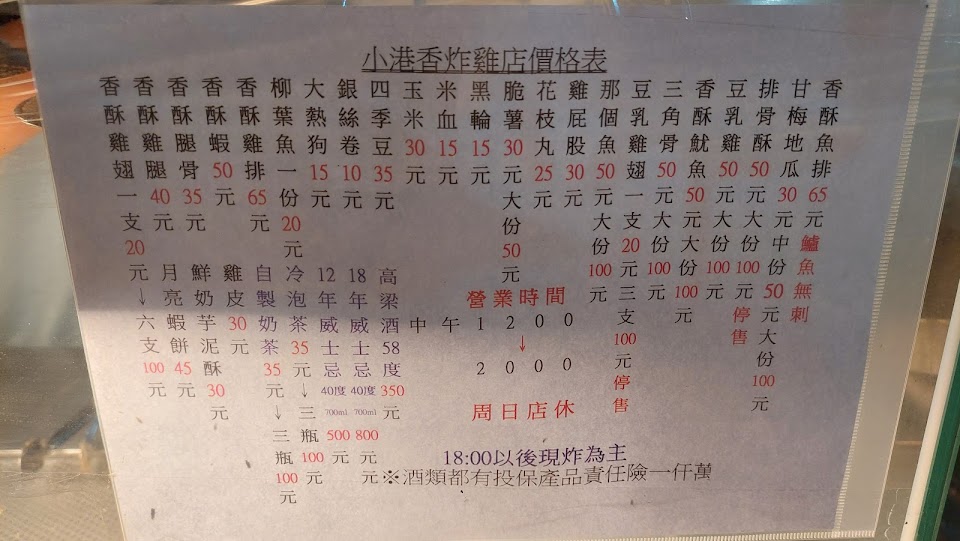 小港香炸雞店價格表
香酥雞翅一支20元↓六支100元
香酥雞腿40元
香酥腿骨35元
香酥蝦50元
香酥雞排65元
柳葉魚一份20元
大熱狗15元
銀絲卷10元
四季豆35元
玉米30元
米血15元
黑輪15元
脆薯30元大份50元
花枝丸25元
雞屁股30元
那個魚50元大份100元
豆乳雞翅一支20元三支100元停售
三角骨50元大份100元
香酥魷魚50元大份100元
豆乳雞50元大份100元
排骨酥50元大份100元停售
甘梅地瓜30元中份50元大份100元
香酥魚排65元鱸魚無刺
月亮蝦餅45元
鮮奶芋泥酥30元
雞皮30元
自製奶茶35元↓三瓶100元
冷泡茶35元↓三瓶100元
12年威士忌40度700ml500元
18年威士忌40度700ml800元
高梁酒58度350元
營業時間
中午1200
↓
2000
周日店休
18:00以後現炸為主
※酒類都有投保產品責任險一仟萬